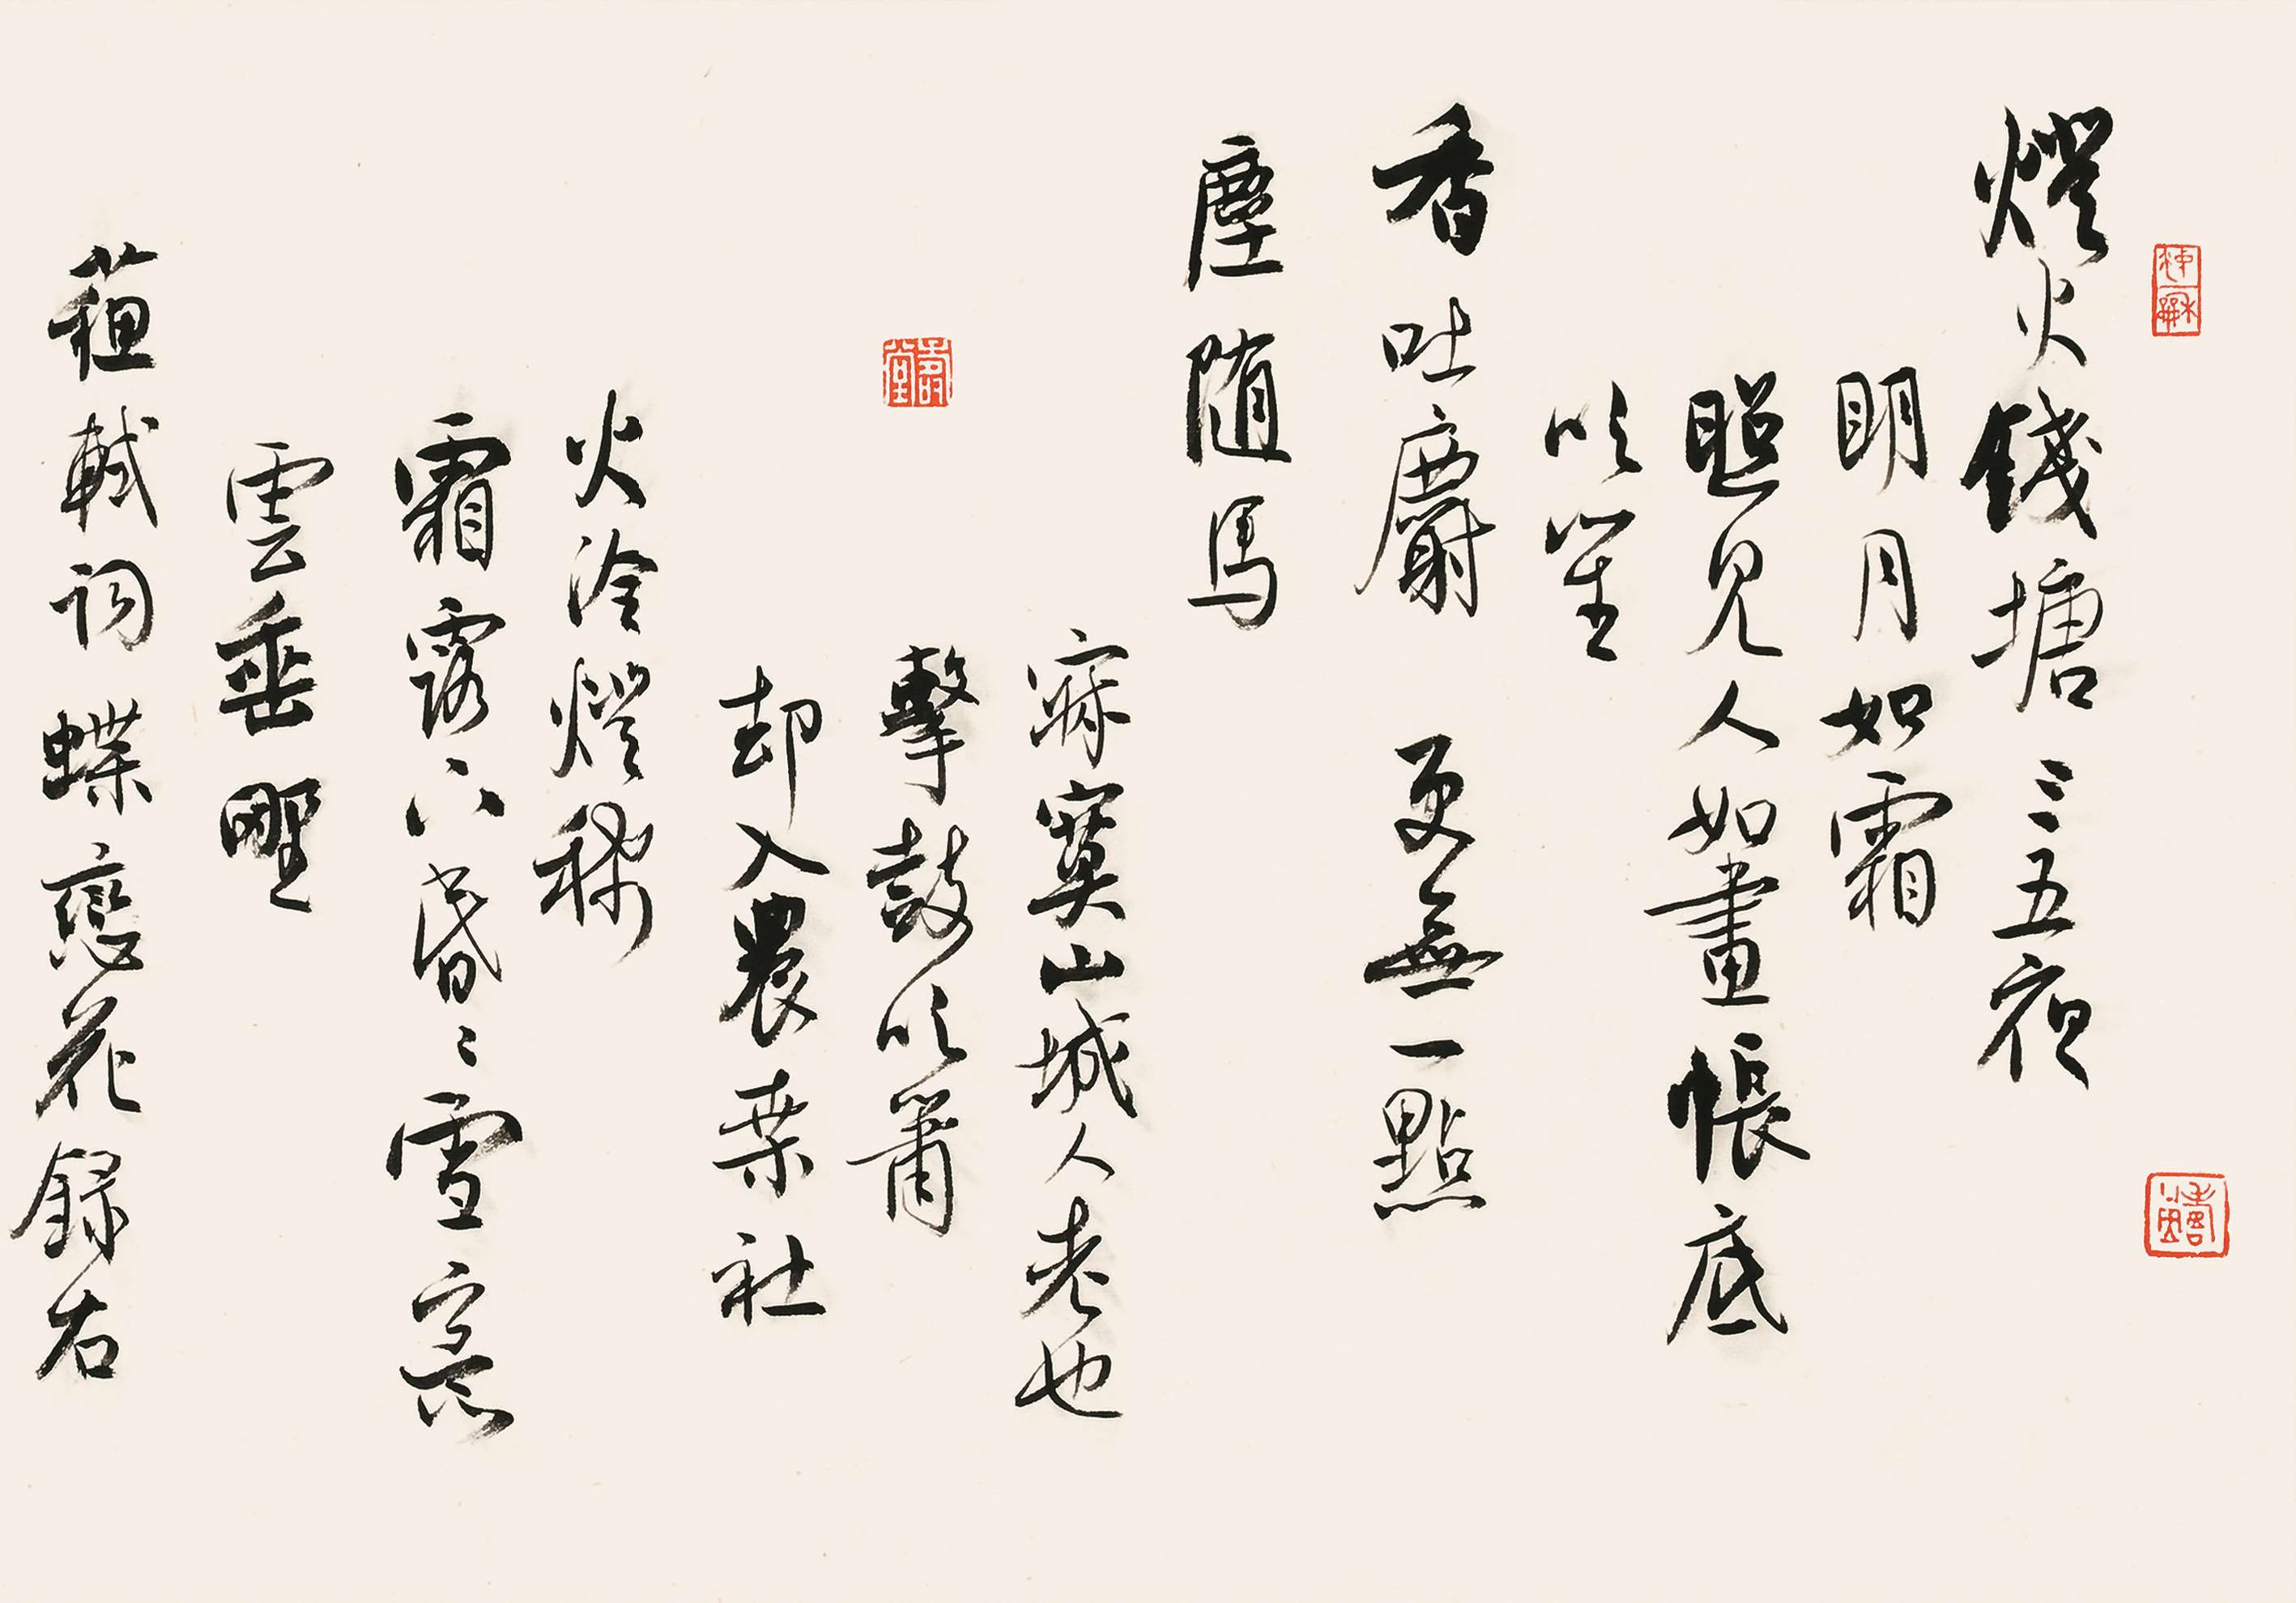 燈火錢塘三五夜
明月如霜
照見人如畫帳底
吹笙
香吐麝更無一點
塵随馬
寂寞山城人老也
擊鼓吹簫
却入農桑社
火冷燈稀
霜露下昏〻雪意
雲垂野
蘇軾詞蝶戀花錄右